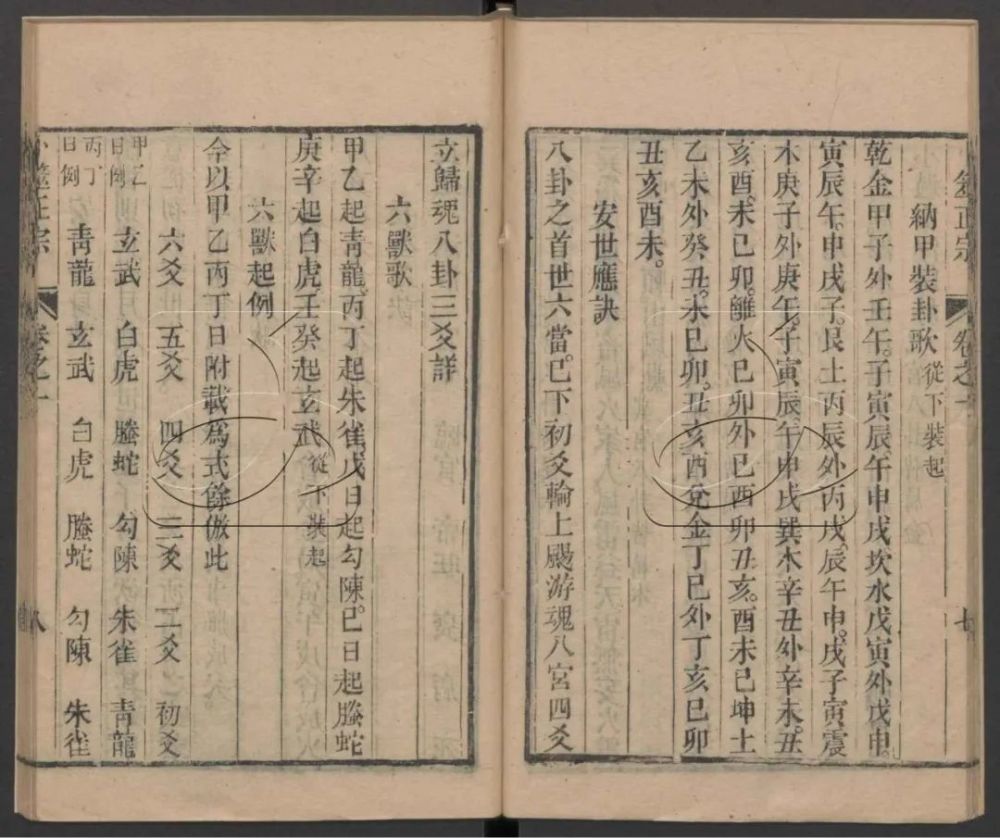 筮正宗 卷之一 七
納甲裝卦歌 從下裝起
乾金甲子外壬午。子寅辰午申戌坎水戊寅外戊申。
寅辰午。申戌子。艮土丙辰外丙戌。辰午申。戌子寅震
木庚子外庚午。子寅辰午申戌巽木辛丑外辛未。丑
亥酉。未巳卯。離火巳卯外巳酉卯丑亥。酉未巳坤土
乙未外癸丑。未巳卯。丑亥酉兌金丁巳外丁亥巳卯
丑亥酉未。
安世應訣
八卦之首世六當。巳下初爻輪上颺游魂八宮四爻
立歸魂八卦三爻詳
六獸歌
甲乙起青龍。丙丁起朱雀戊日起勾陳。巳日起螣蛇
庚辛起白虎壬癸起玄武 從下裝起
六獸起例
今以甲乙丙丁日附載爲式餘倣此
六爻 五爻 四爻 三爻 二爻 初爻
甲乙日例 玄武 白虎 螣蛇 勾陳 朱雀 青龍
丙丁日例 青龍 玄武 白虎 螣蛇 勾陳 朱雀
卜筮正宗 卷之一 八